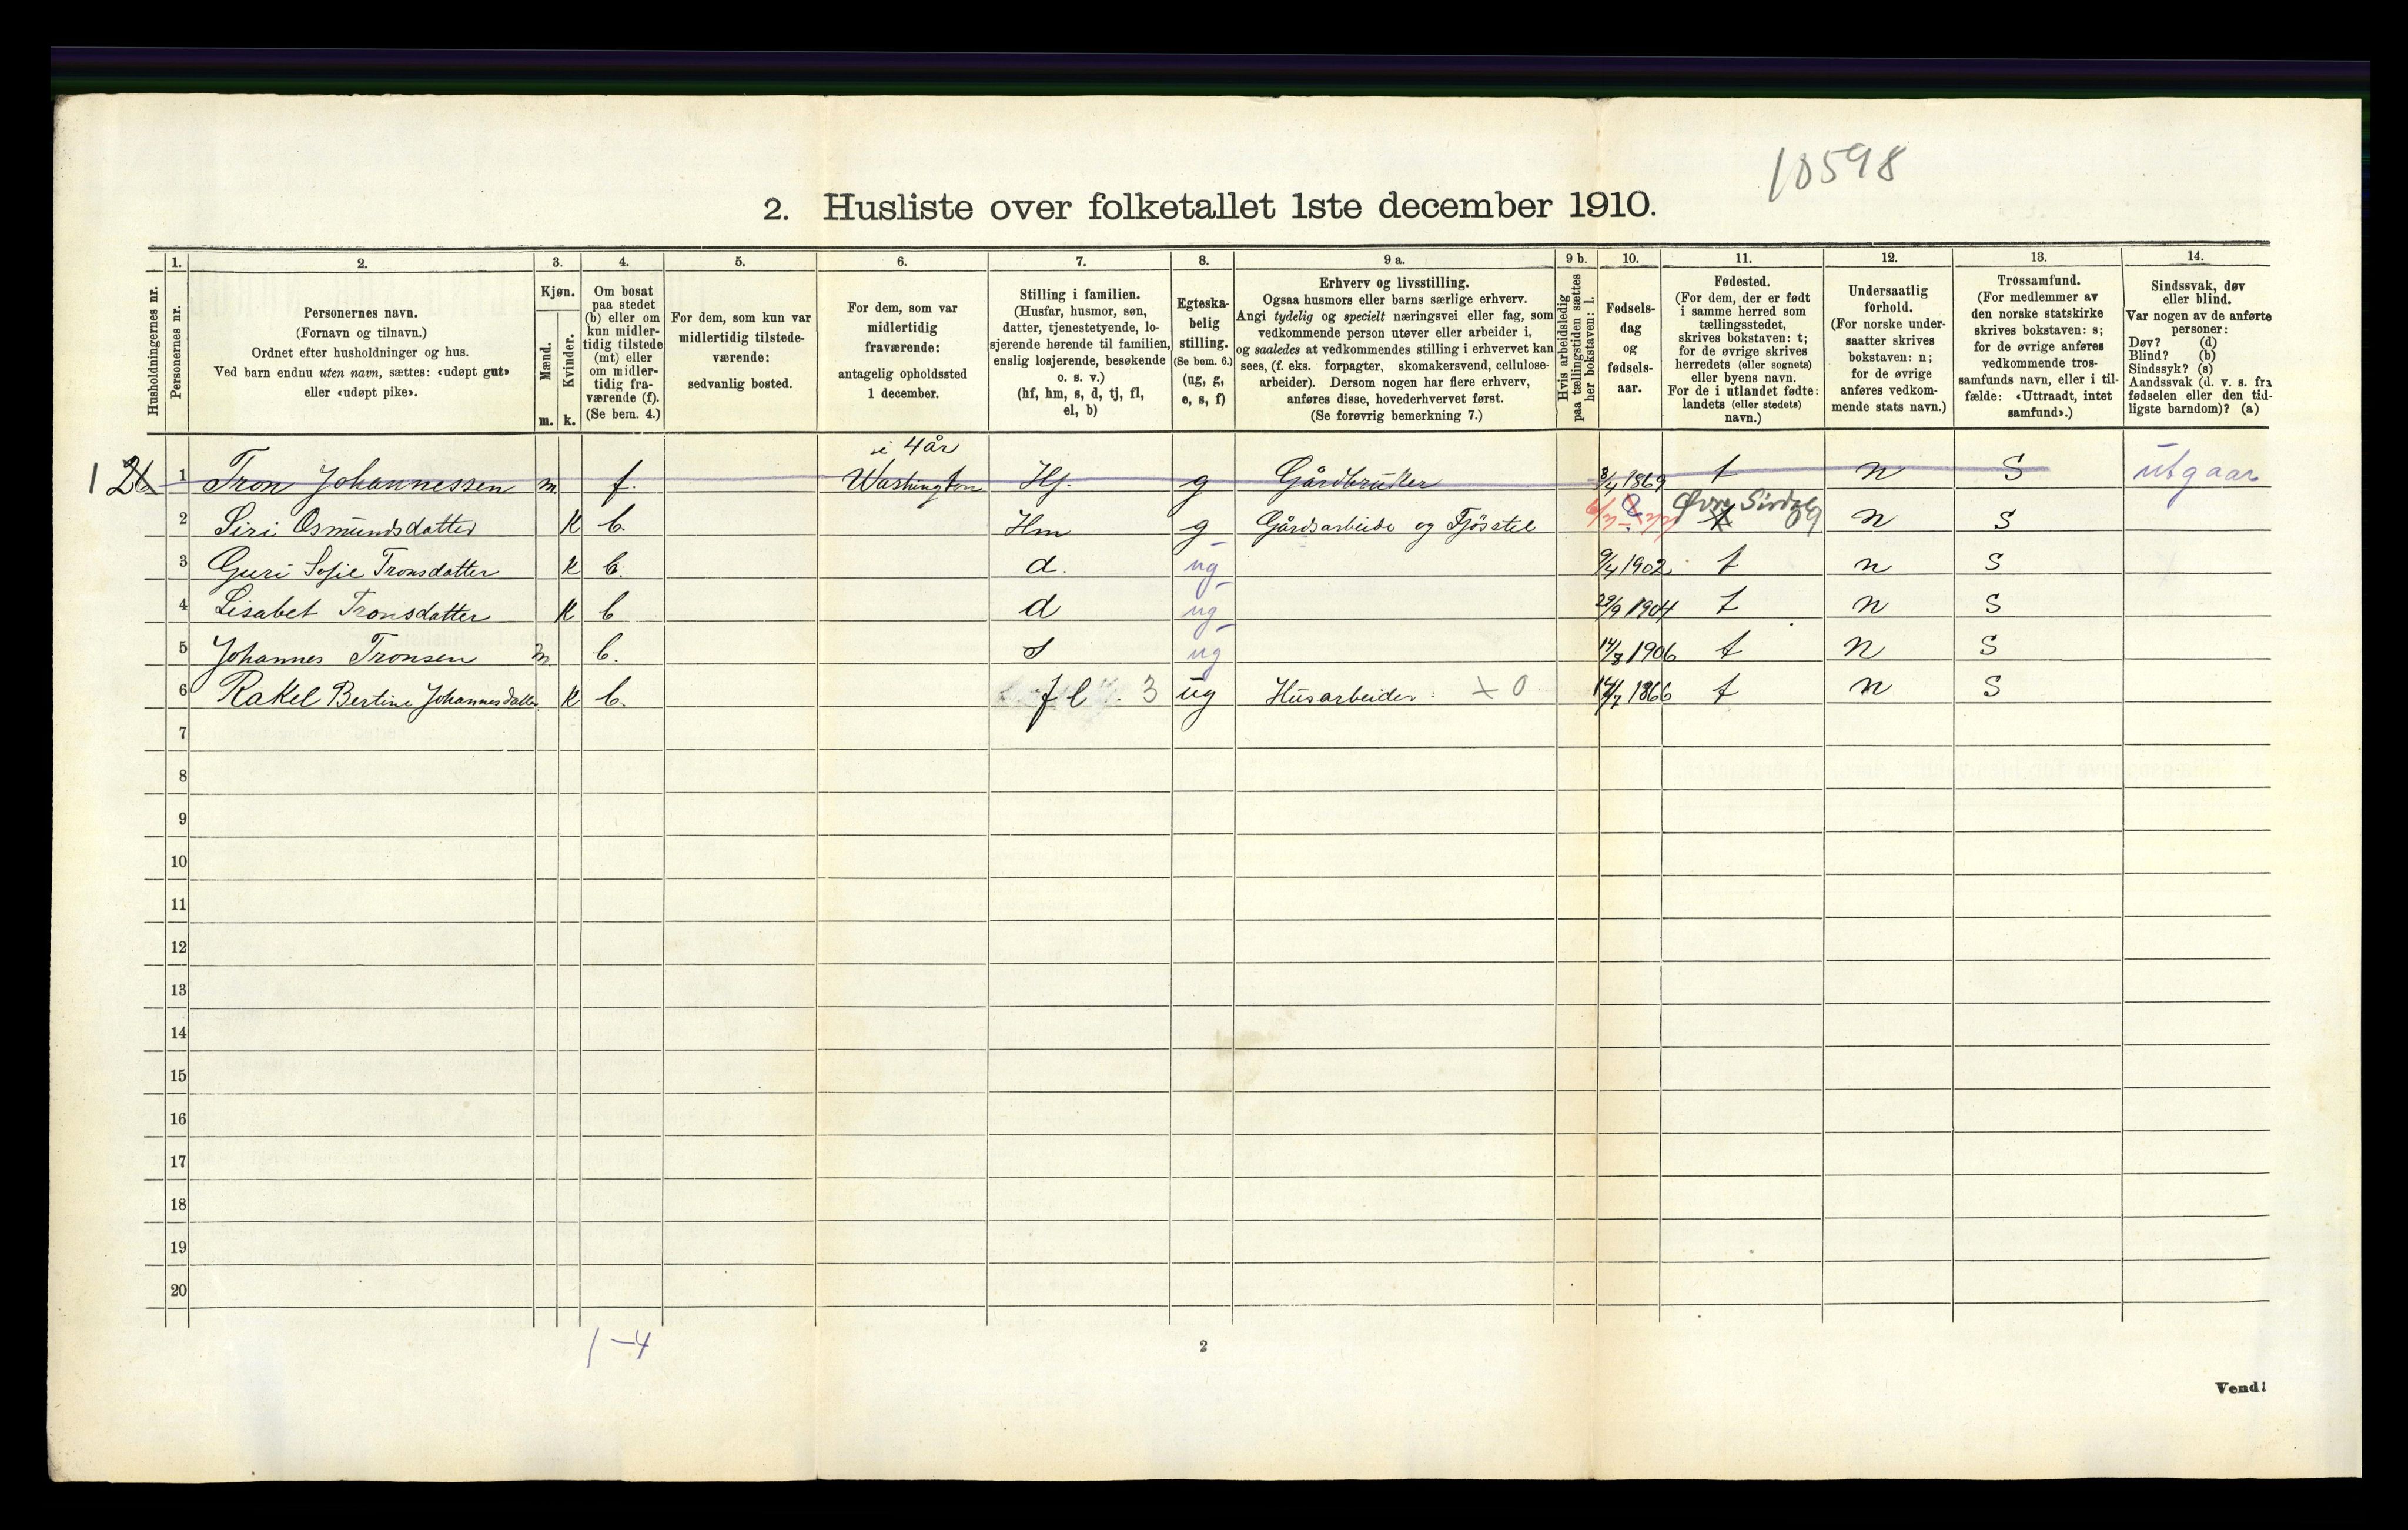 10598
2. Husliste over folketallet 1ste december 1910.
Husholdningernes nr.
1.
Personernes nr.
2.
Personernes navn.
(Fornavn og tilnavn.)
Ordnet efter husholdninger og hus.
Ved barn endnu uten navn, sættes: «udøpt gut»
eller «udøpt pike».
3.
Kjøn.
Mænd.
Kvinder.
m. k.
4.
Om bosat
paa stedet
(b) eller om
kun midler-
tidig tilstede
(mt) eller
om midler-
tidig fra-
værende (f).
(Se bem. 4.)
5.
For dem, som kun var
midlertidig tilstede-
værende:
sedvanlig bosted.
6.
For dem, som var
midlertidig
fraværende:
antagelig opholdssted
1 december.
7.
Stilling i familien.
(Husfar, husmor, søn,
datter, tjenestetyende, lo-
sjerende hørende til familien,
enslig losjerende, besøkende
o. s. v.)
(hf, hm, s, d, tj, fl,
el, b)
8.
Egteska-
belig
stilling.
(Se bem. 6.)
(ug, g,
e, s, f)
9 a.
Erhverv og livsstilling.
Ogsaa husmors eller barns særlige erhverv.
Angi tydelig og specielt næringsvei eller fag, som
vedkommende person utøver eller arbeider i,
og saaledes at vedkommendes stilling i erhvervet kan
sees, (f. eks. forpagter, skomakersvend, cellulose-
arbeider). Dersom nogen har flere erhverv,
anføres disse, hovederhvervet først.
(Se forøvrig bemerkning 7.)
9 b.
Hvis arbeidsledig
paa tællingstiden sættes
her bokstaven: l.
10.
Fødsels-
dag
og
fødsels-
aar.
11.
Fødested.
(For dem, der er født
i samme herred som
tællingsstedet,
skrives bokstaven: t;
for de øvrige skrives
herredets (eller sognets)
eller byens navn.
For de i utlandet fødte:
landets (eller stedets)
navn.)
12.
Undersaatlig
forhold.
(For norske under-
saatter skrives
bokstaven: n;
for de øvrige
anføres vedkom-
mende stats navn.)
13.
Trossamfund.
(For medlemmer av
den norske statskirke
skrives bokstaven: s;
for de øvrige anføres
vedkommende tros-
samfunds navn, eller i til-
fælde: «Uttraadt, intet
samfund».)
14.
Sindssvak, døv
eller blind.
Var nogen av de anførte
personer:
Døv? (d)
Blind? (b)
Sindssyk? (s)
Aandssvak (d. v. s. fra
fødselen eller den tid-
ligste barndom)? (a)
i 4 år
1 1 Tron Johannessen m f. Washington Hf. g Gårdbruker 3/4 1869 t n S utgaar
2 Siri Osmundsdatter K b. Hm g Gårdsarbeide og Fjøsstel Øvre Sirdal n S
3 Guri Sofie Tronsdatter K b. d. ug 9/4 1902 t n S
4 Lisabet Tronsdatter K b d ug 29/9 1904 t n S
5 Johannes Tronsen m b. s ug 14/8 1906 t n S
6 Rakel Bertine Johannesdatter K b. fl. 3 ug Husarbeider 0 14/7 1866 t n S
7
8
9
10
11
12
13
14
15
16
17
18
19
20
1 - 4
2
Vend!